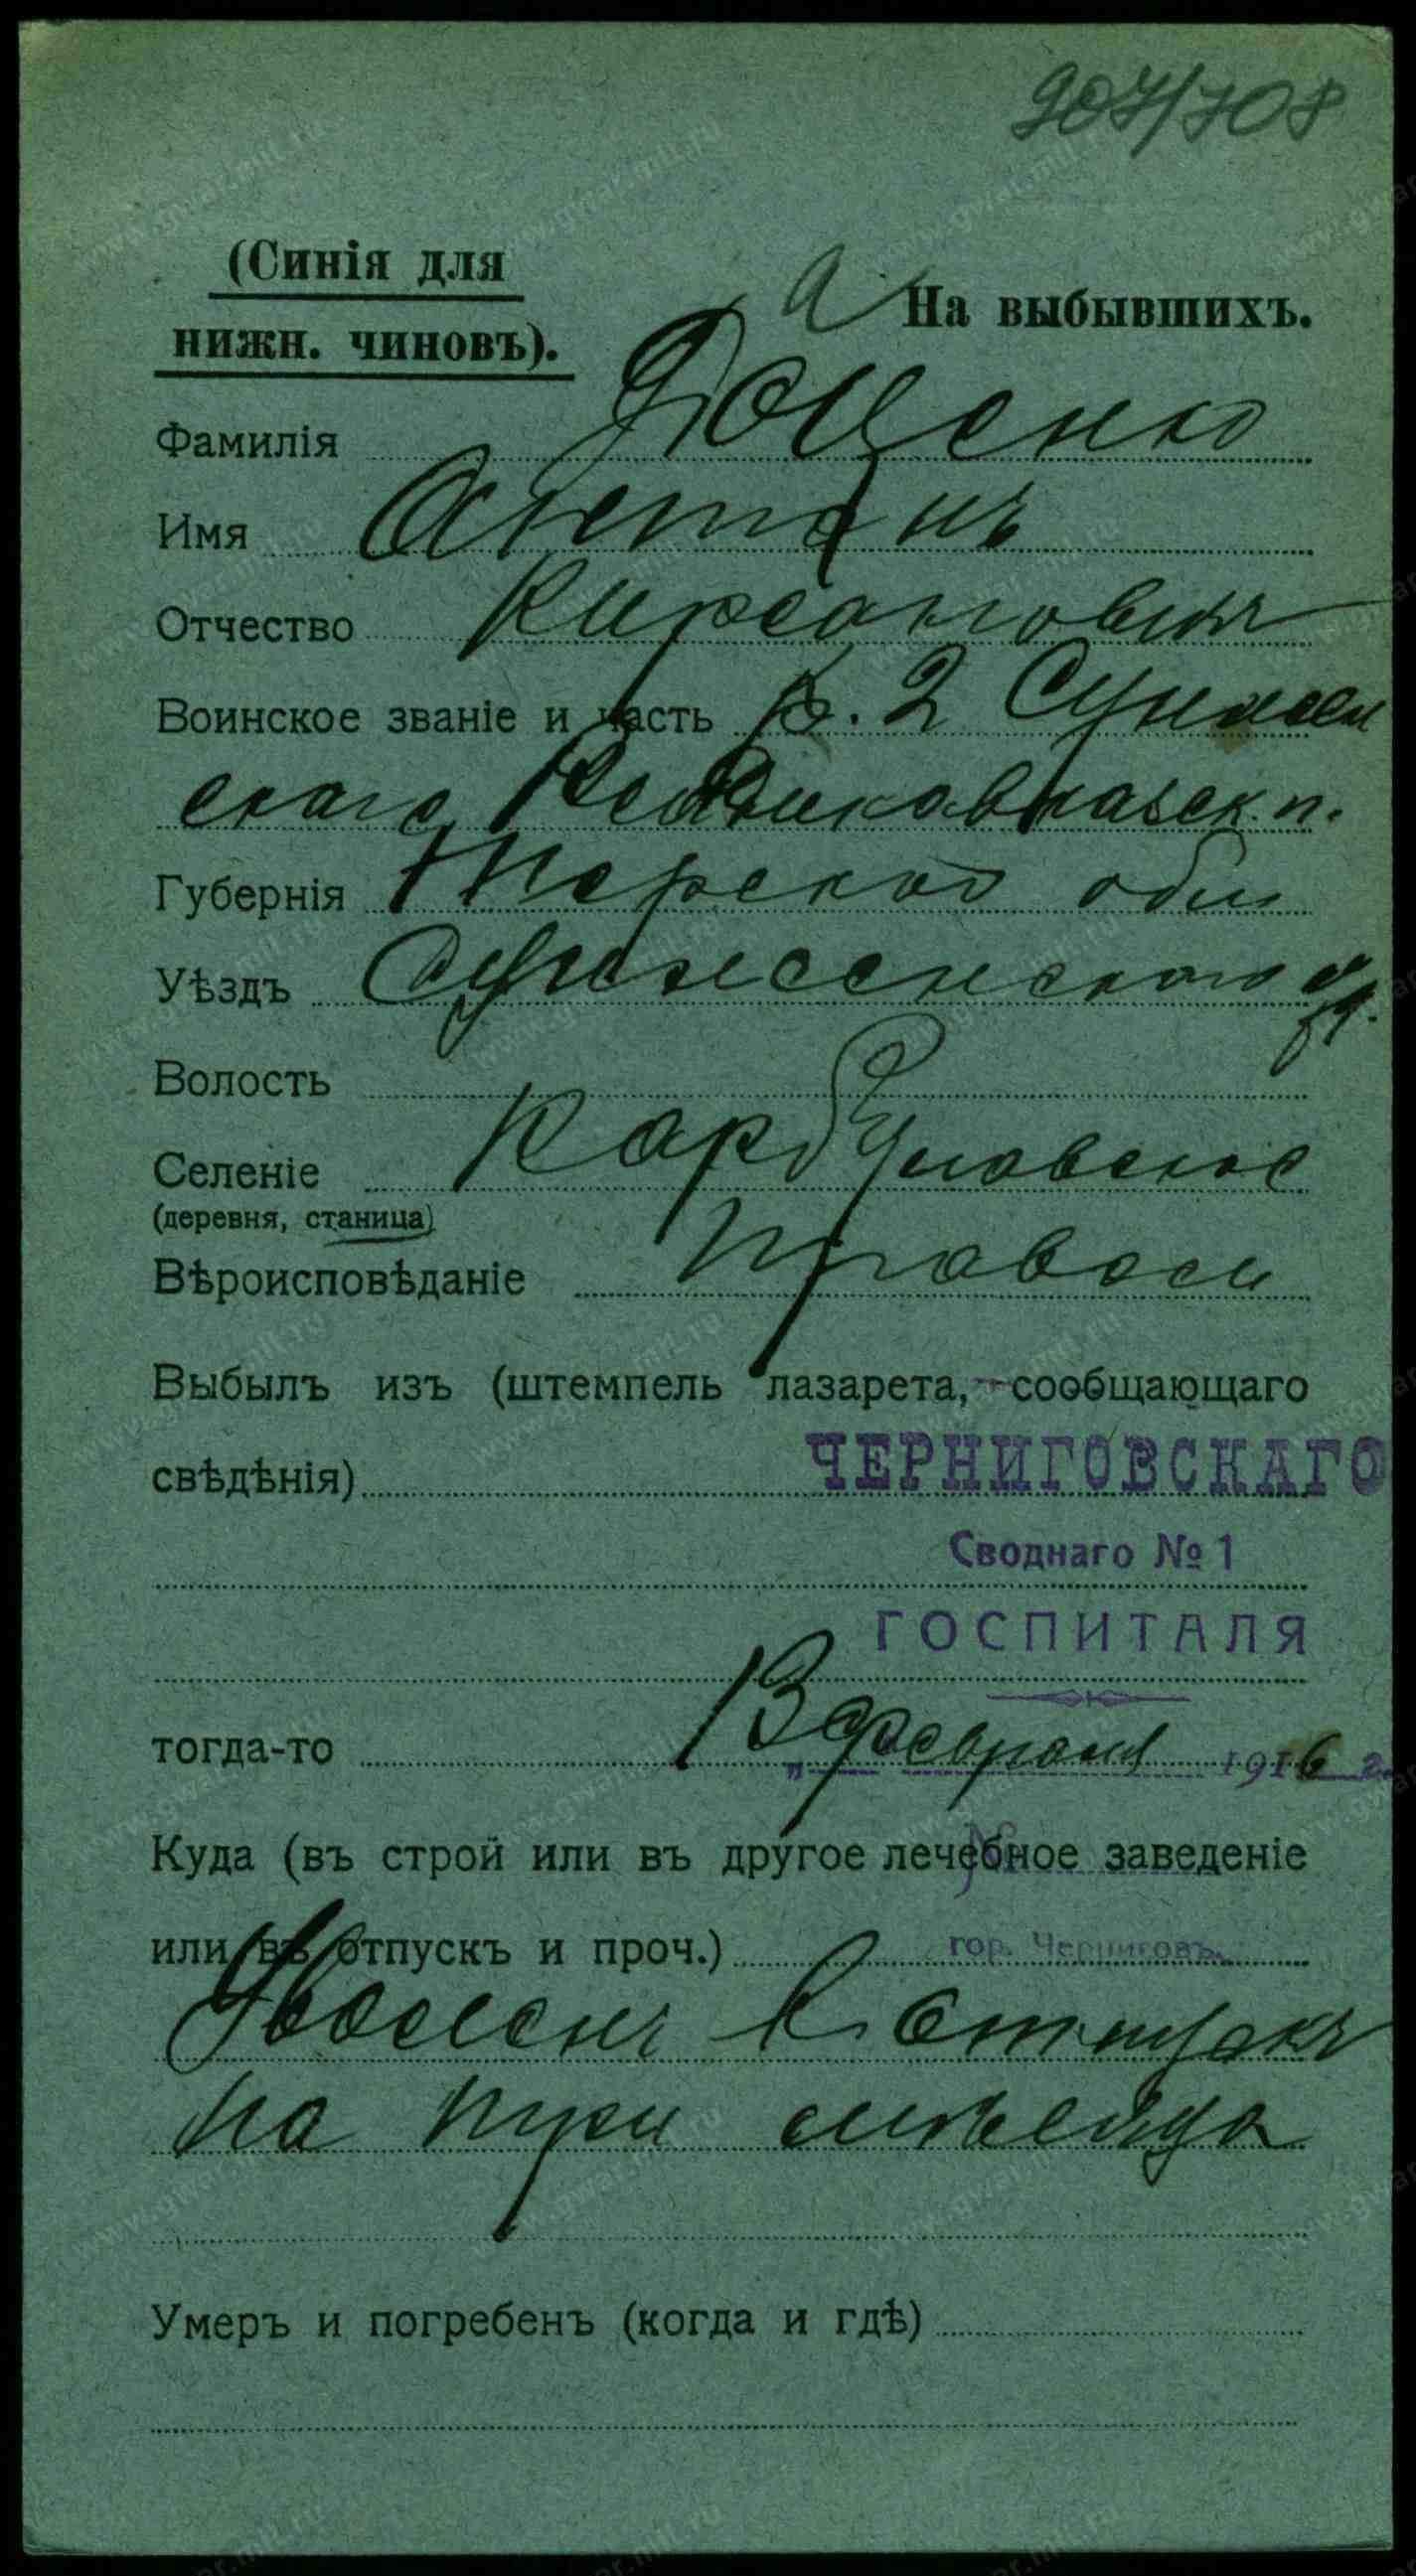 907/708
(Синія для
нижн. чиновъ).
На выбывшихъ.
Фамилія Доценко
Имя Антонъ
Отчество Кирсановичъ
Воинское званіе и часть к. 2 Сунжен
скаго Владикавказск п.
Губернія Терской обл
Уѣздъ Сунженскаго
Волость
Селеніе Карбулавское
(деревня, станица)
Вѣроисповѣданіе Правосл
Выбылъ изъ (штемпель лазарета, сообщающаго
свѣдѣнія) ЧЕРНИГОВСКАГО
Своднаго № 1
ГОСПИТАЛЯ
тогда-то 13 февраля 1916 г.
Куда (въ строй или въ другое лечебное заведеніе
или въ отпускъ и проч.) гор. Черниговъ.
Уволенъ въ отпускъ
на три мѣсяца
Умеръ и погребенъ (когда и гдѣ)